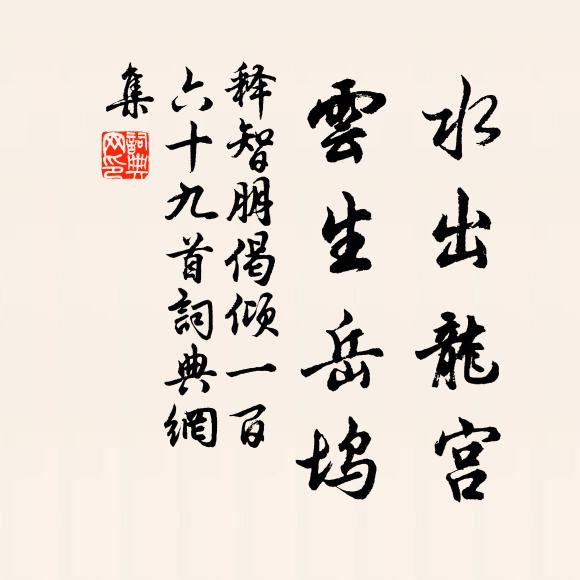 水出龍宮
雲生岳塢
释智朋偈倾一百
六十九首詞典網
集
詞典網印